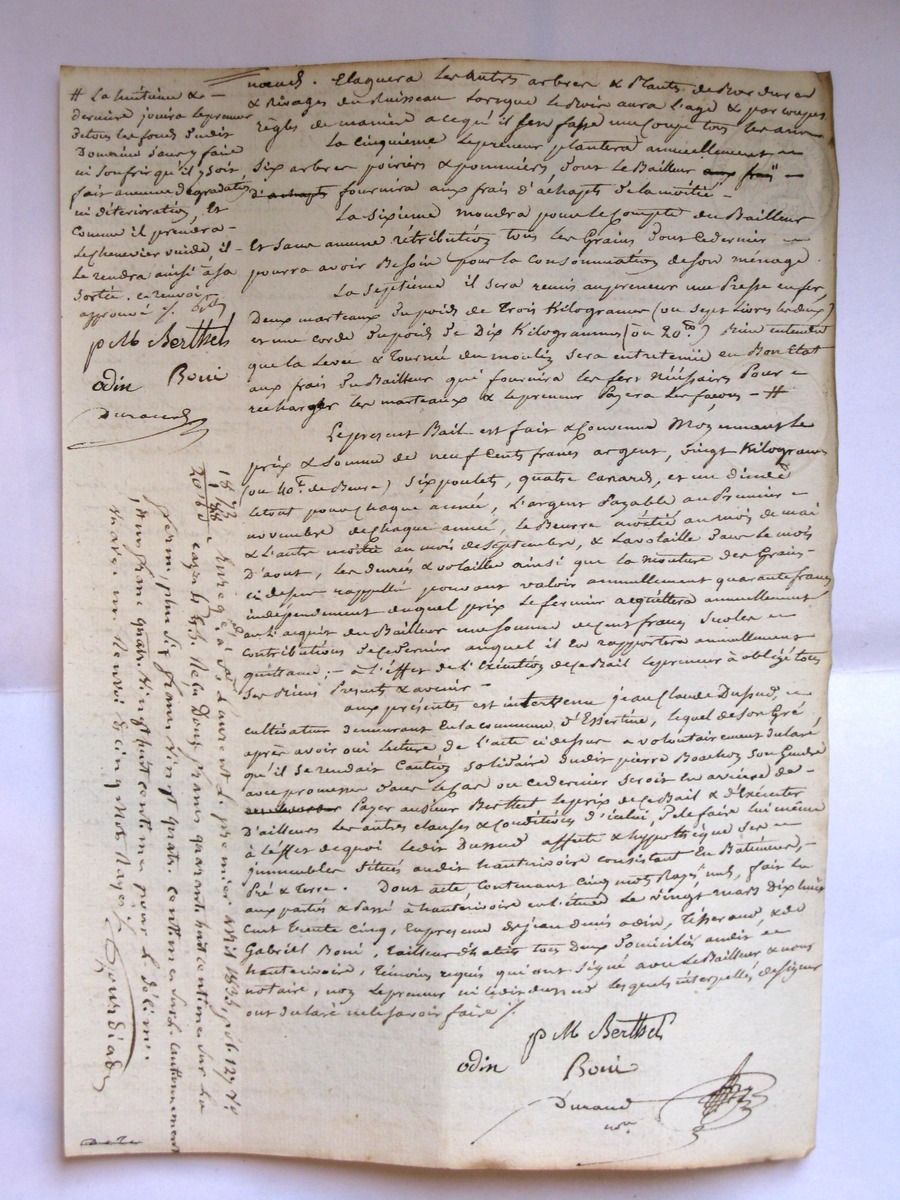 # La huitième & -
dernière jouira le preneur
de tous les fonds dudit
Domaine sans y faire
ni souffrir qu'il y soit
fait aucune dégradation
ni détérioration, Et
comme il prendra -
le chenevier vuide, il -
le rendra ainsi à sa
sortie. ce renvoi
approuvé ./.
p M Berthet
odin Boni
Durand
nœuds. Elaguera les autres arbres & Plants de Bordures
& Rivages du Ruisseau lorsque le Bois aura l'age & par coupes
règles de manière à ce qu'il s'en fasse une coupe tous les ans
La cinquième le preneur plantera annuellement -
six arbres poiriers & pommiers, dont le Bailleur aux frais -
d'achapts fournira aux frais d'achapts de la moitié -
La sixième moudra pour le compte du Bailleur
Et sans aucune rétribution tous les Grains dont ce dernier -
pourra avoir Besoin pour la consommation de son ménage.
La septième il sera remis au preneur une Presse en fer,
Deux marteaux du poids de Trois Kilogrames (ou sept Livres les deux)
et une corde du poids de Dix Kilogrammes (ou 20 ) Bien entendu
que la Levée & Tournée du moulin sera entretenue en Bon Etat
aux frais du Bailleur qui fournira les fers nécessaires Pour -
recharger les marteaux & le preneur Payera les façons - #
Le présent Bail est fait & Convenu Moyennant le
prix & Somme de neuf Cents francs argent, vingt Kilogrames
(ou 40 de Beurre) six poulets, quatre canards, et une dinde
le tout pour chaque année, L'argent Payable au Premier -
novembre de chaque année, le Beurre moitié au mois de mai
& L'autre moitié au mois de septembre, & la volaille dans le mois
D'aout, les denrées & volaille ainsi que la mouture des Grains -
ci dessus rappellée pouvant valoir annuellement quarante francs
indépendament duquel prix le fermier acquittera annuellement
en l'acquit du Bailleur une somme de cent francs sur les -
contributions de ce dernier auquel il en rapportera annuellement
quittance; - à l'effet de l'Exécution de ce Bail le preneur à obligé tous
ses Biens Présents & avenir -
aux présentes est intervenu jean Claude Dussud, -
cultivateur demeurant En la commune d'Essertine, lequel de son Gré
après avoir oui Lecture de l'acte ci dessus a volontairement déclaré
qu'il se rendait Caution solidaire dudit pierre son Gendre
avec promesse dans le Cas ou ce dernier seroit en arrière de -
Payer au sieur Berthet le prix de ce Bail & d'Exécuter
D'ailleurs les autres clauses & Conditions d'icelui, de le faire lui même
à l'effet de quoi ledit Dussud affecte & hypothèque ses -
immeubles situés audit hauterivoire consistant En Batiments, -
Pré & terre. Dont acte Contenant Cinq mots Rayés nuls, fait lu
aux parties & Passé à hauterivoire en l'étude Le vingt mars dix huit
Cent Trente Cinq, En présence de jean denis odin, Tisserand, & de
Gabriel Boni, Tailleur d'habits tous deux domiciliés audit -
hauterivoire, témoins requis qui ont signé avec le Bailleur & nous
notaire, non le preneur ni ledit dussud lesquels interpellés de signer
ont déclaré ne le savoir faire ./.
p M Berthet
odin Boni
Durand
Enregistré à St Laurent le premier avril 1835, fol. 127
Reçu Douze francs quarante huit centimes sur la
ferme, plus six francs vingt quatre centimes sur le cautionnement
& un franc quatre vingt huit centimes pour le décime